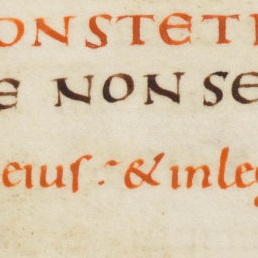 ONSTETI
E NON SE
eius : & inleg